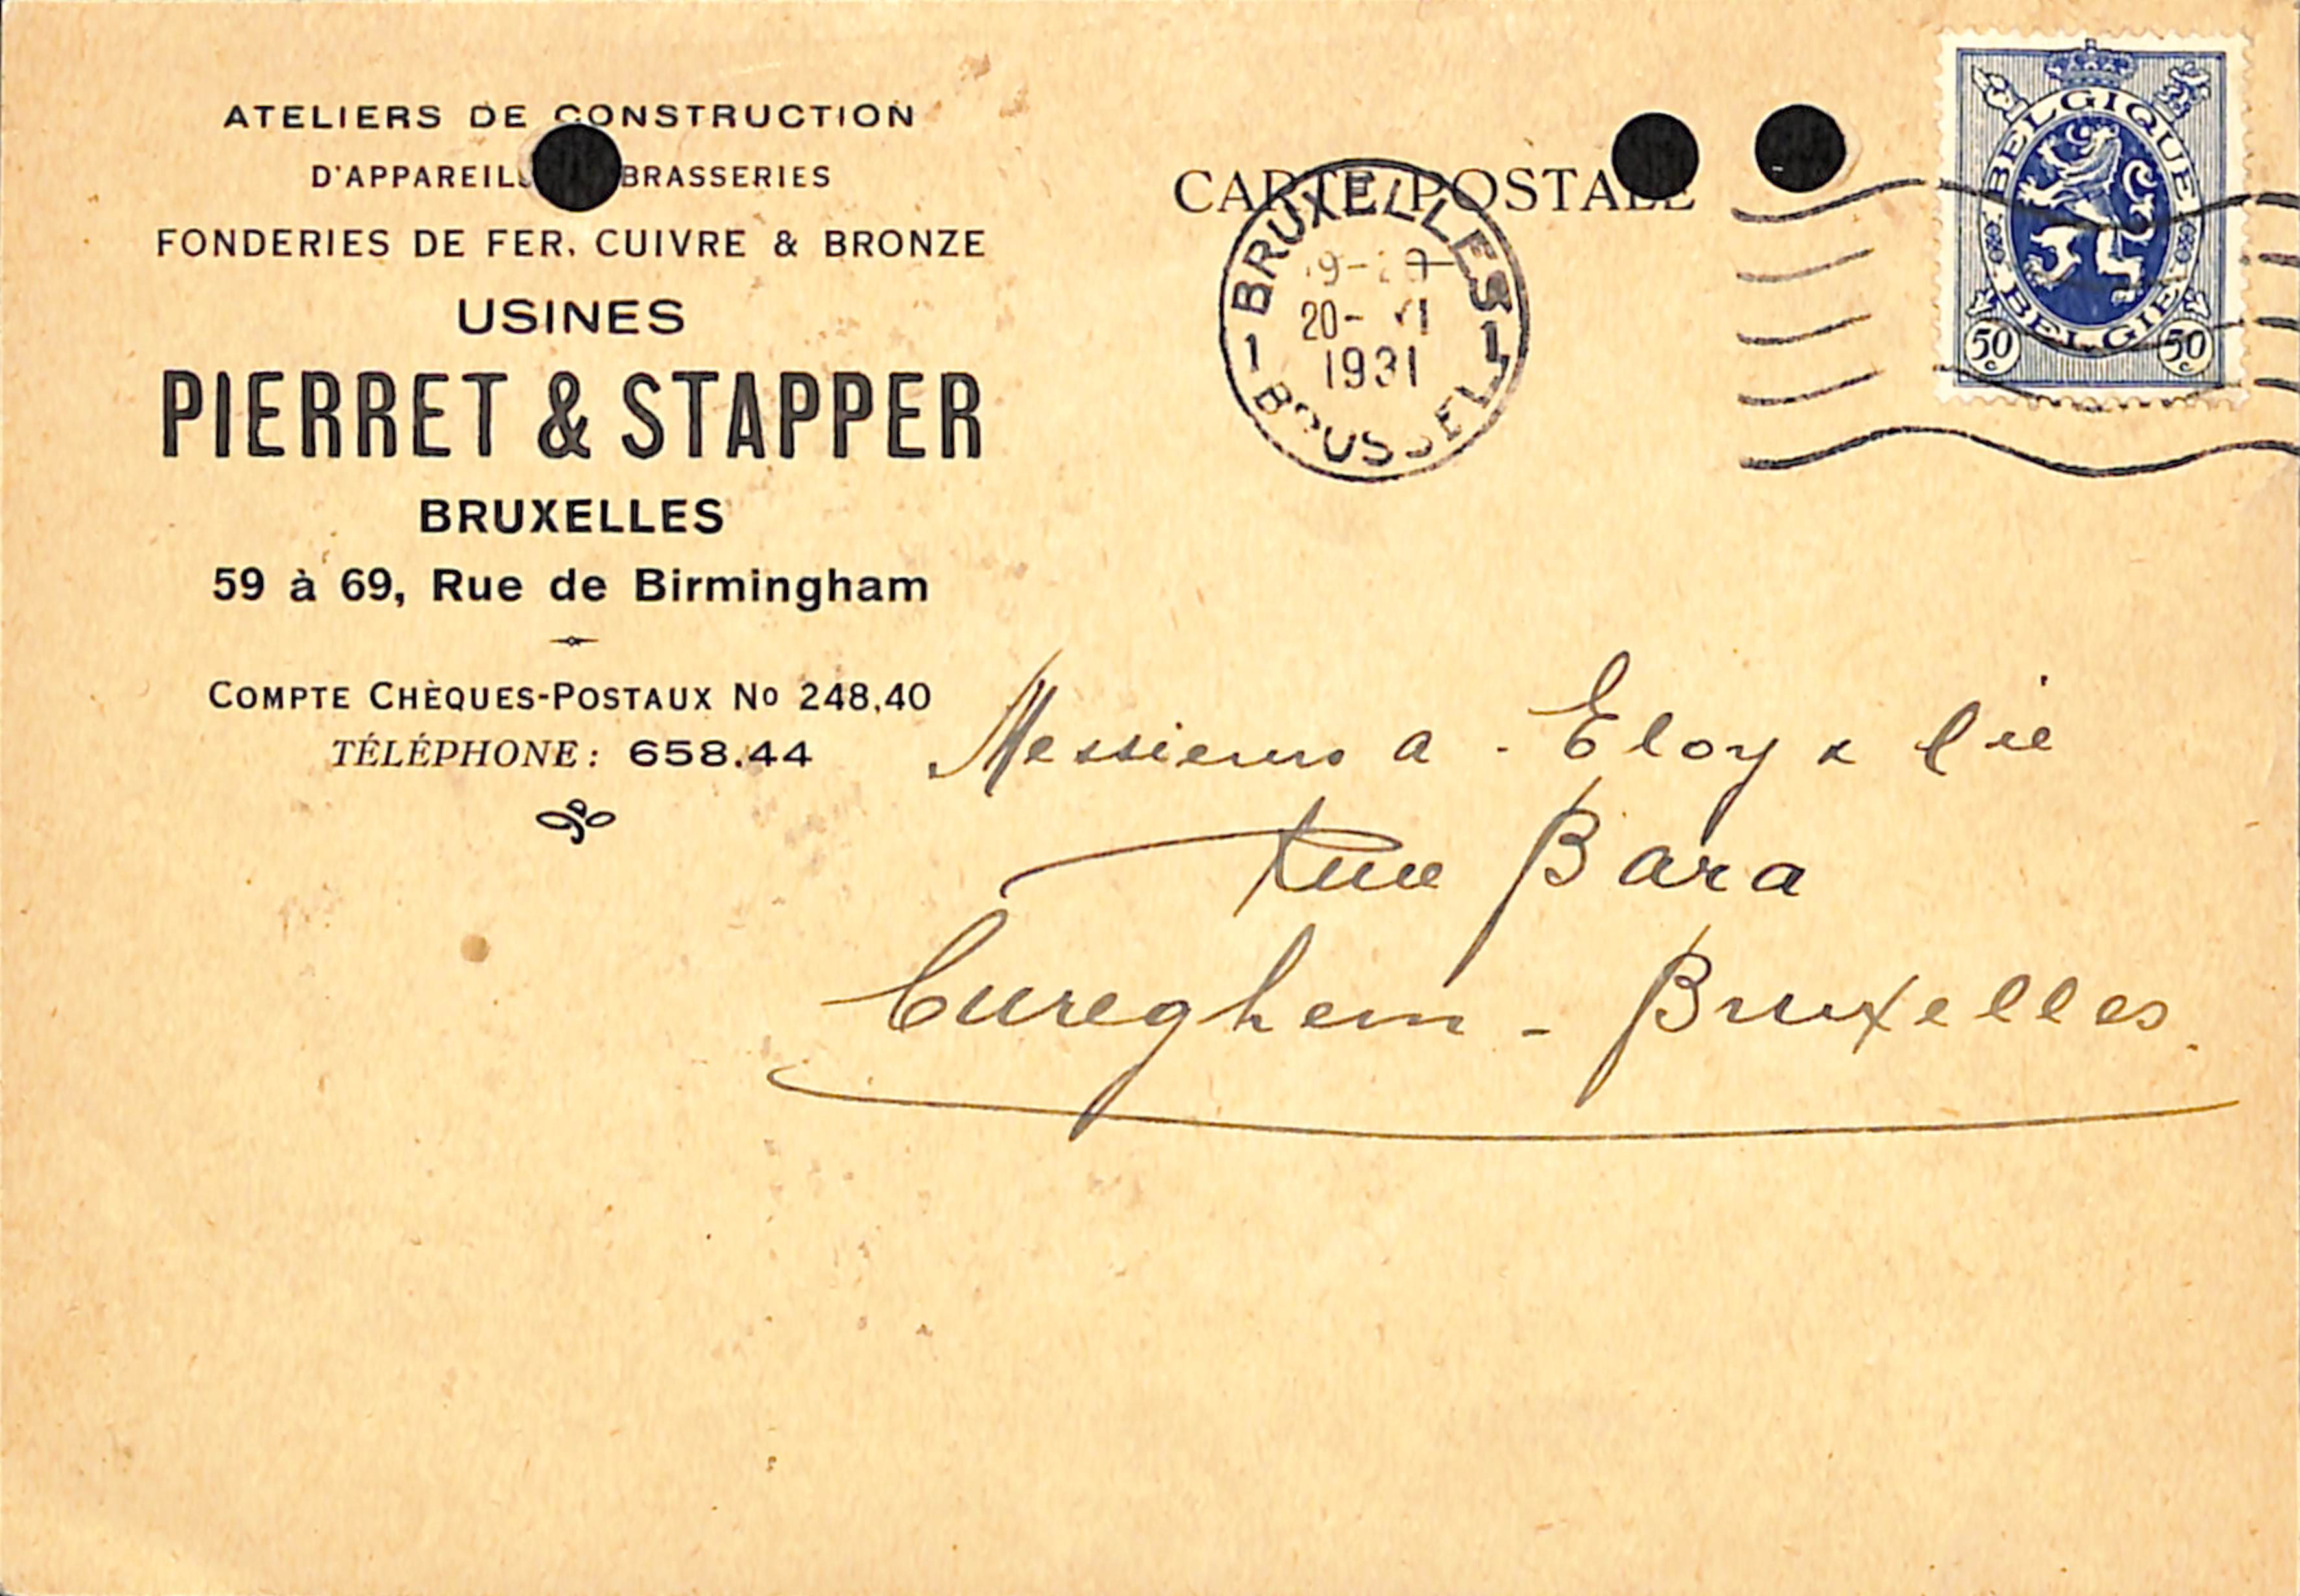 ATELIERS DE CONSTRUCTION
D'APPAREILS BRASSERIES
FONDERIES DE FER, CUIVRE & BRONZE
USINES
PIERRET & STAPPER
BRUXELLES
59 à 69, Rue de Birmingham
COMPTE CHÈQUES-POSTAUX No 248,40
TÉLÉPHONE: 658.44
CARTE POSTALE
1 BRUXELLES 1
20-
1931
BRUSSEL
BELGIQUE
BELGIË
50c 50c
Messieurs A. Eloy & Cie
Rue Bara
Cureghem - Bruxelles.